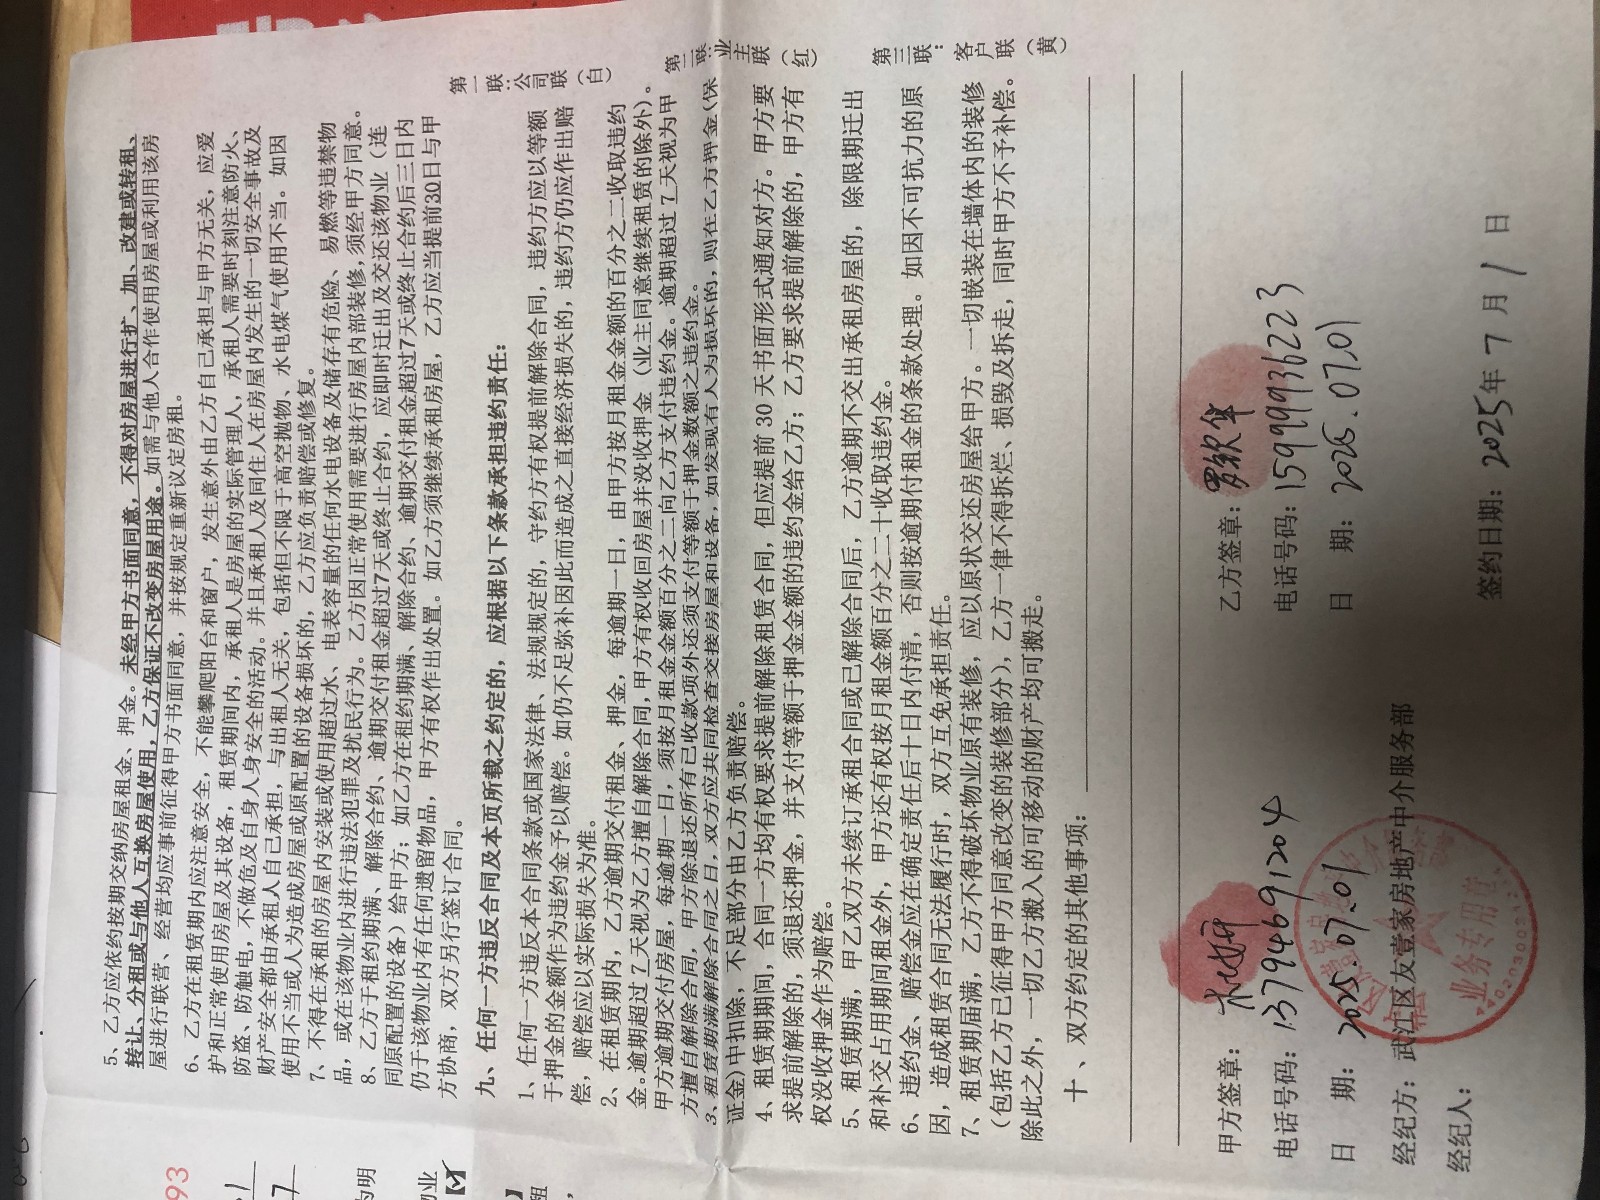 5、乙方应依约按期交纳房屋租金、押金。未经甲方书面同意，不得对房屋进行扩、加、改建或转租、
转让、分租或与他人互换房屋使用，乙方保证不改变房屋用途。如需与他人合作使用房屋或利用该房
屋进行联营、经营均应事前征得甲方书面同意，并按规定重新议定房租。
6、乙方在租赁期内应注意安全，不能攀爬阳台和窗户，发生意外由乙方自己承担与甲方无关，应爱
护和正常使用房屋及其设备，租赁期间内，承租人是房屋的实际管理人，承租人需要时刻注意防火、
防盗、防触电，不做危及自身人身安全的活动。并且承租人及同住人在房屋内发生的一切安全事故及
财产安全都由承租人自己承担，与出租人无关，包括但不限于高空抛物、水电煤气使用不当。如因
使用不当或人为造成房屋或原配置的设备损坏的，乙方应负责赔偿或修复。
7、不得在承租的房屋内安装或使用超过水、电表容量的任何水电设备及储存有危险、易燃等违禁物
品，或在该物业内进行违法犯罪及扰民行为。乙方因正常使用需要进行房屋内部装修,须经甲方同意。
8、乙方于租约期满、解除合约、逾期交付租金超过7天或终止合约，应即时迁出及交还该物业（连
同原配置的设备）给甲方；如乙方在租约期满、解除合约、逾期交付租金超过7天或终止合约后三日内
仍于该物业内有任何遗留物品，甲方有权作出处置。如乙方须继续承租房屋，乙方应当提前30日与甲
方协商，双方另行签订合同。
九、任何一方违反合同及本页所载之约定的，应根据以下条款承担违约责任：
1、任何一方违反本合同条款或国家法律、法规规定的，守约方有权提前解除合同，违约方应以等额
于押金的金额作为违约金予以赔偿。如仍不足弥补因此而造成之直接经济损失的，违约方仍应作出赔
偿，赔偿应以实际损失为准。
2、在租赁期内，乙方逾期交付租金、押金，每逾期一日，由甲方按月租金金额的百分之二收取违约
金。逾期超过 7 天视为乙方擅自解除合同,甲方有权收回房屋并没收押金（业主同意继续租赁的除外）。
甲方逾期交付房屋，每逾期一日，须按月租金金额百分之二向乙方支付违约金。逾期超过 7 天视为甲
方擅自解除合同，甲方除退还所有已收款项外还须支付等额于押金数额之违约金。
3、租赁期满解除合同之日，双方应共同检查交接房屋和设备，如发现有人为损坏的，则在乙方押金（保
证金）中扣除，不足部分由乙方负责赔偿。
4、租赁期期间，合同一方均有权要求提前解除租赁合同，但应提前 30 天书面形式通知对方。甲方要
求提前解除的，须退还押金，并支付等额于押金金额的违约金给乙方；乙方要求提前解除的，甲方有
权没收押金作为赔偿。
5、租赁期满，甲乙双方未续订承租合同或已解除合同后，乙方逾期不交出承租房屋的，除限期迁出
和补交占用期间租金外，甲方还有权按月租金额百分之二十收取违约金。
6、违约金、赔偿金应在确定责任后十日内付清，否则按逾期付租金的条款处理。如因不可抗力的原
因，造成租赁合同无法履行时，双方互免承担责任。
7、租赁期届满，乙方不得破坏物业原有装修，应以原状交还房屋给甲方。一切嵌装在墙体内的装修
（包括乙方已征得甲方同意改变的装修部分），乙方一律不得拆烂、损毁及拆走，同时甲方不予补偿。
除此之外，一切乙方搬入的可移动的财产均可搬走。
十、双方约定的其他事项：
第一联:公司联（白）
第二联:业主联（红）
第三联:客户联（黄）
甲方签章：
电话号码：13794691204
日 期：2025.07.01
乙方签章：罗钦华
电话号码：15999936223
日 期：2025.07.01
经纪方：武江区友壹家房地产中介服务部
经纪人：
签约日期：2025年7月1日
业务专用章
93
为明
物业
租